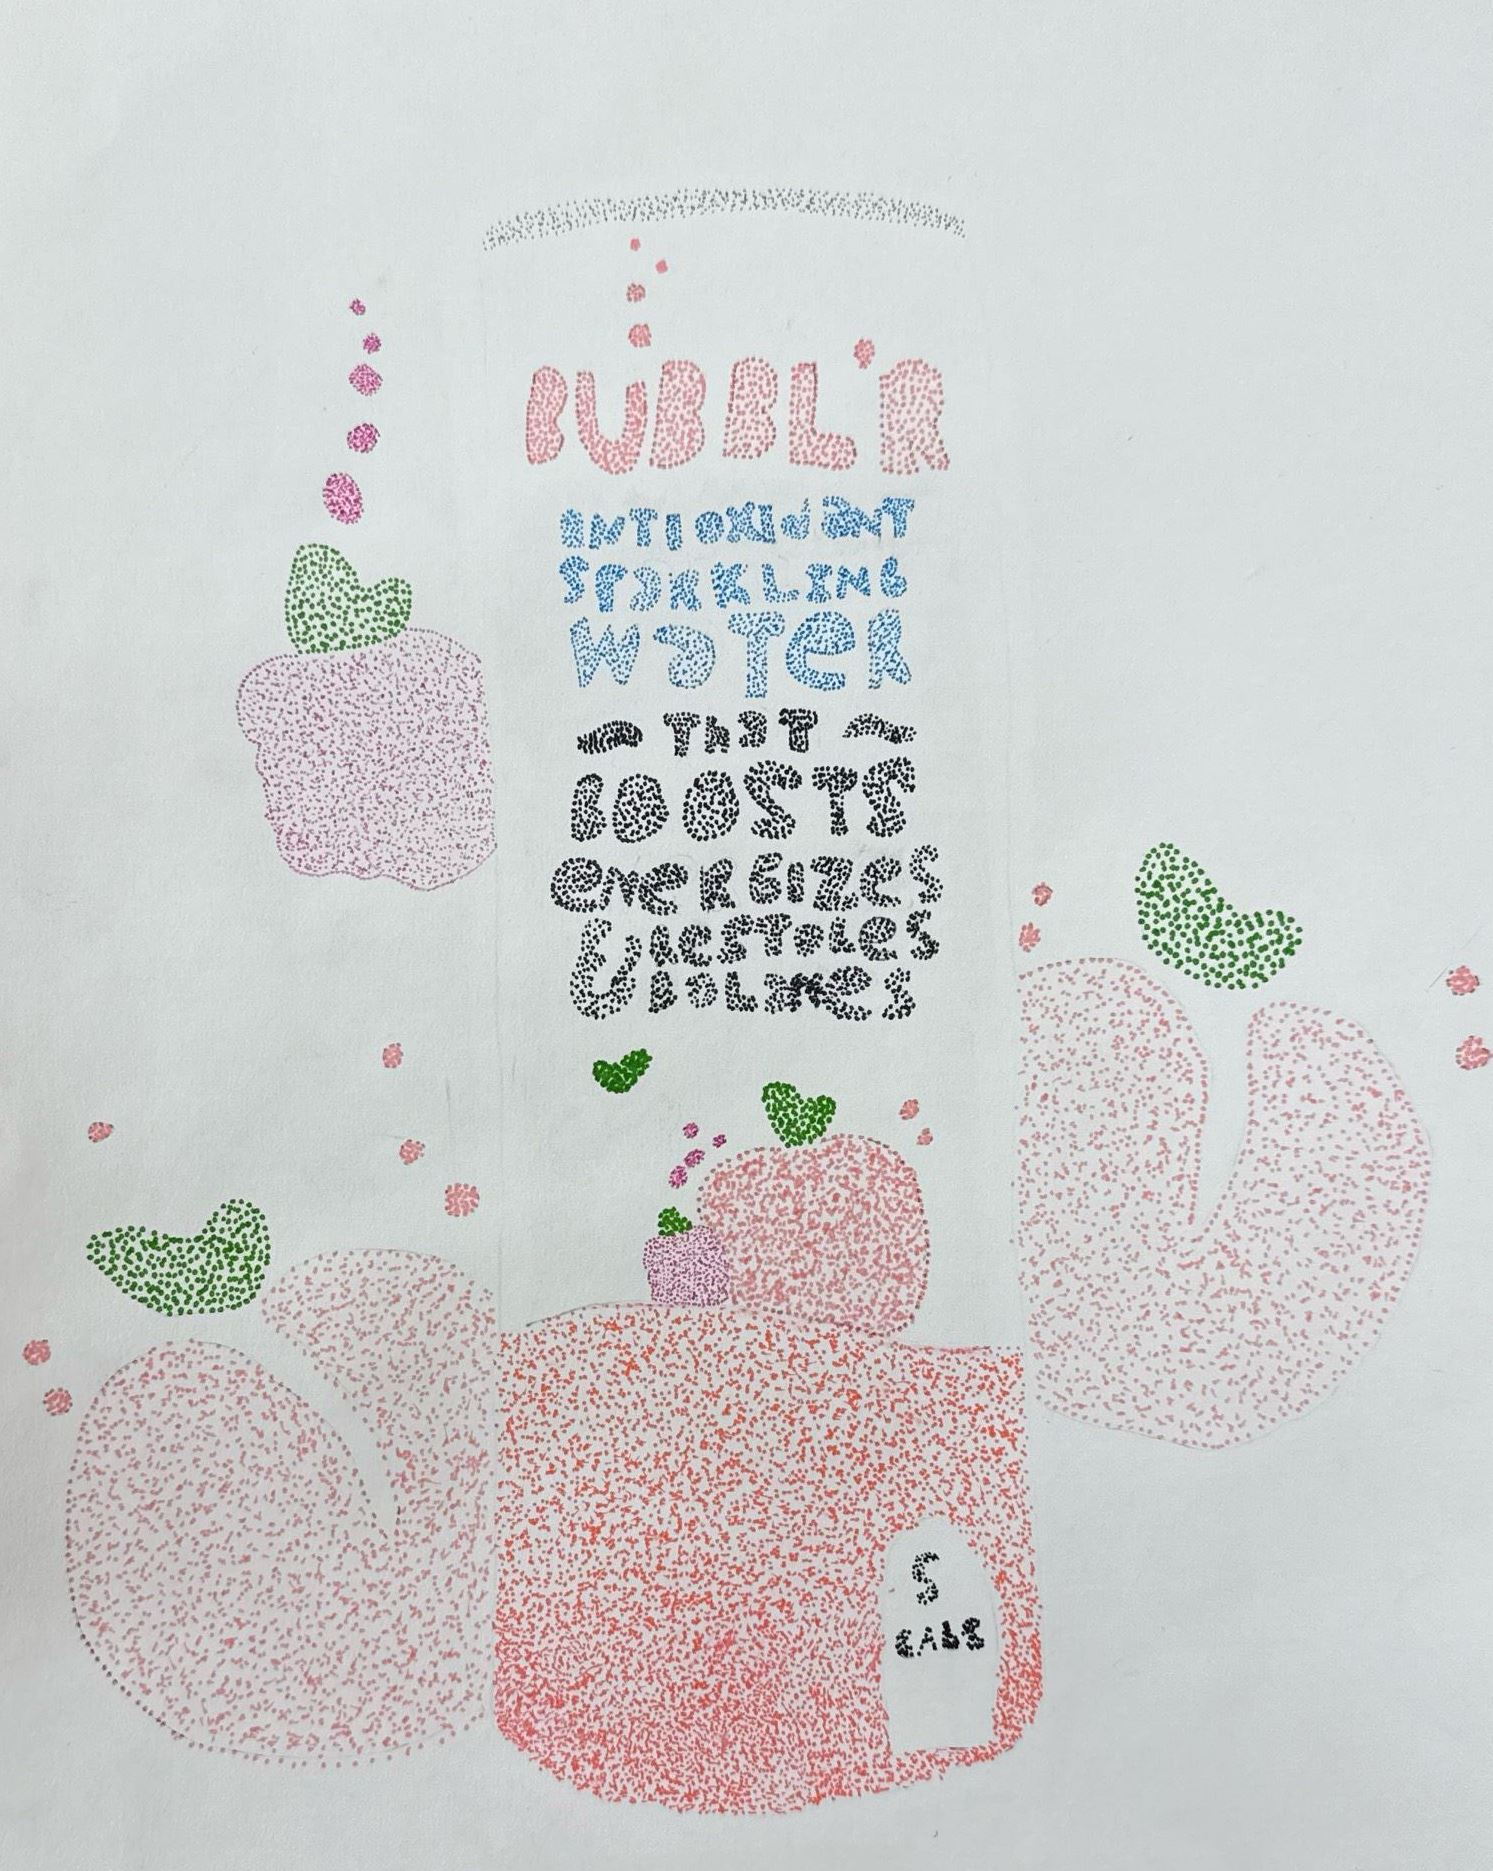 BUBBL'R
aNTIOXIdaNT
SPaRKLING
WaTeR
~ ThaT ~
BOOSTS
eNeRGIZeS
& ReSToReS
BaLaNceS
5
CALS